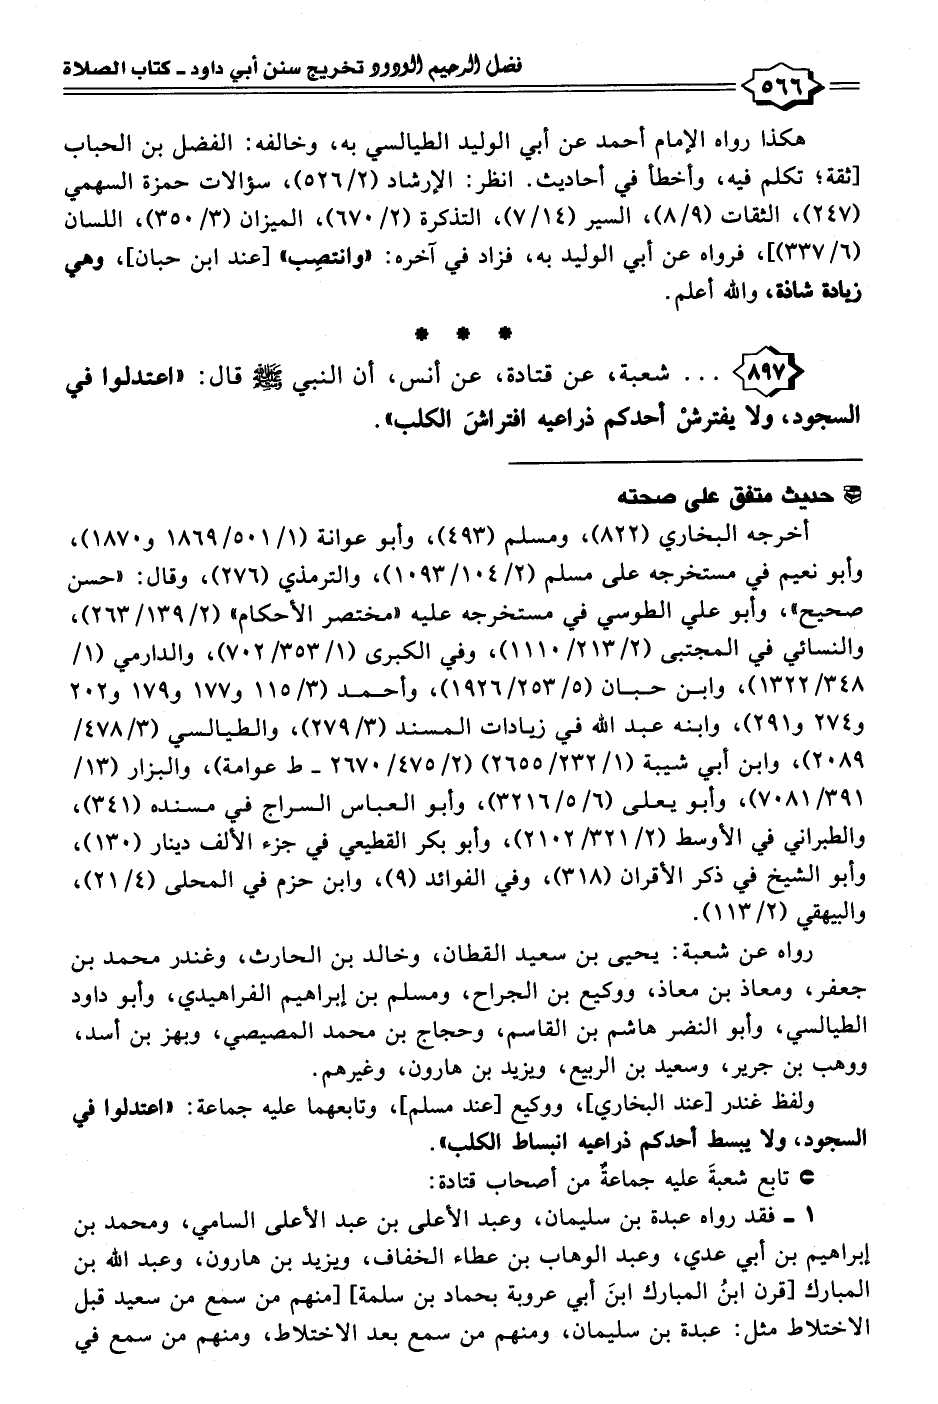 فضل الرحيم الودود تخريج سنن أبي داود - كتاب الصلاة
٥٦٦
هكذا رواه الإمام أحمد عن أبي الوليد الطيالسي به، وخالفه: الفضل بن الحباب
[ثقة؛ تكلم فيه، وأخطأ في أحاديث. انظر: الإرشاد (٥٢٦/٢)، سؤالات حمزة السهمي
(٢٤٧)، الثقات (٨/٩)، السير (٧/١٤)، التذكرة (٦٧٠/٢)، الميزان (٣٥٠/٣)، اللسان
(٣٣٧/٦)]، فرواه عن أبي الوليد به، فزاد في آخره: «وانتصِب» [عند ابن حبان]، وهي
زيادة شاذة، والله أعلم.
* * *
٨٩٧ ... شعبة، عن قتادة، عن أنس، أن النبي ﷺ قال: «اعتدلوا في
السجود، ولا يفترشْ أحدكم ذراعيه افتراشَ الكلب».
حديث متفق على صحته
أخرجه البخاري (٨٢٢)، ومسلم (٤٩٣)، وأبو عوانة (١/٥٠١/١٨٦٩ و١٨٧٠)،
وأبو نعيم في مستخرجه على مسلم (٢/١٠٤/١٠٩٣)، والترمذي (٢٧٦)، وقال: «حسن
صحيح»، وأبو علي الطوسي في مستخرجه عليه «مختصر الأحكام» (٢/١٣٩/٢٦٣)،
والنسائي في المجتبى (٢/٢١٣/١١١٠)، وفي الكبرى (١/٣٥٣/٧٠٢)، والدارمي (١/
٣٤٨/١٣٢٢)، وابن حبان (٥/٢٥٣/١٩٢٦)، وأحمد (٣/١١٥ و١٧٧ و١٧٩ و٢٠٢
و٢٧٤ و٢٩١)، وابنه عبد الله في زيادات المسند (٢٧٩/٣)، والطيالسي (٣/٤٧٨/
٢٠٨٩)، وابن أبي شيبة (١/٢٣٢/٢٦٥٥) (٢/٤٧٥/٢٦٧٠ - ط عوامة)، والبزار (١٣/
٣٩١/٧٠٨١)، وأبو يعلى (٦/٥/٣٢١٦)، وأبو العباس السراج في مسنده (٣٤١)،
والطبراني في الأوسط (٢/٣٢١/٢١٠٢)، وأبو بكر القطيعي في جزء الألف دينار (١٣٠)،
وأبو الشيخ في ذكر الأقران (٣١٨)، وفي الفوائد (٩)، وابن حزم في المحلى (٢١/٤)،
والبيهقي (١١٣/٢).
رواه عن شعبة: يحيى بن سعيد القطان، وخالد بن الحارث، وغندر محمد بن
جعفر، ومعاذ بن معاذ، ووكيع بن الجراح، ومسلم بن إبراهيم الفراهيدي، وأبو داود
الطيالسي، وأبو النضر هاشم بن القاسم، وحجاج بن محمد المصيصي، وبهز بن أسد،
ووهب بن جرير، وسعيد بن الربيع، ويزيد بن هارون، وغيرهم.
ولفظ غندر [عند البخاري]، ووكيع [عند مسلم]، وتابعهما عليه جماعة: «اعتدلوا في
السجود، ولا يبسط أحدكم ذراعيه انبساط الكلب».
تابع شعبةَ عليه جماعةٌ من أصحاب قتادة:
١ - فقد رواه عبدة بن سليمان، وعبد الأعلى بن عبد الأعلى السامي، ومحمد بن
إبراهيم بن أبي عدي، وعبد الوهاب بن عطاء الخفاف، ويزيد بن هارون، وعبد الله بن
المبارك [قرن ابنُ المبارك ابنَ أبي عروبة بحماد بن سلمة] [منهم من سمع من سعيد قبل
الاختلاط مثل: عبدة بن سليمان، ومنهم من سمع بعد الاختلاط، ومنهم من سمع في